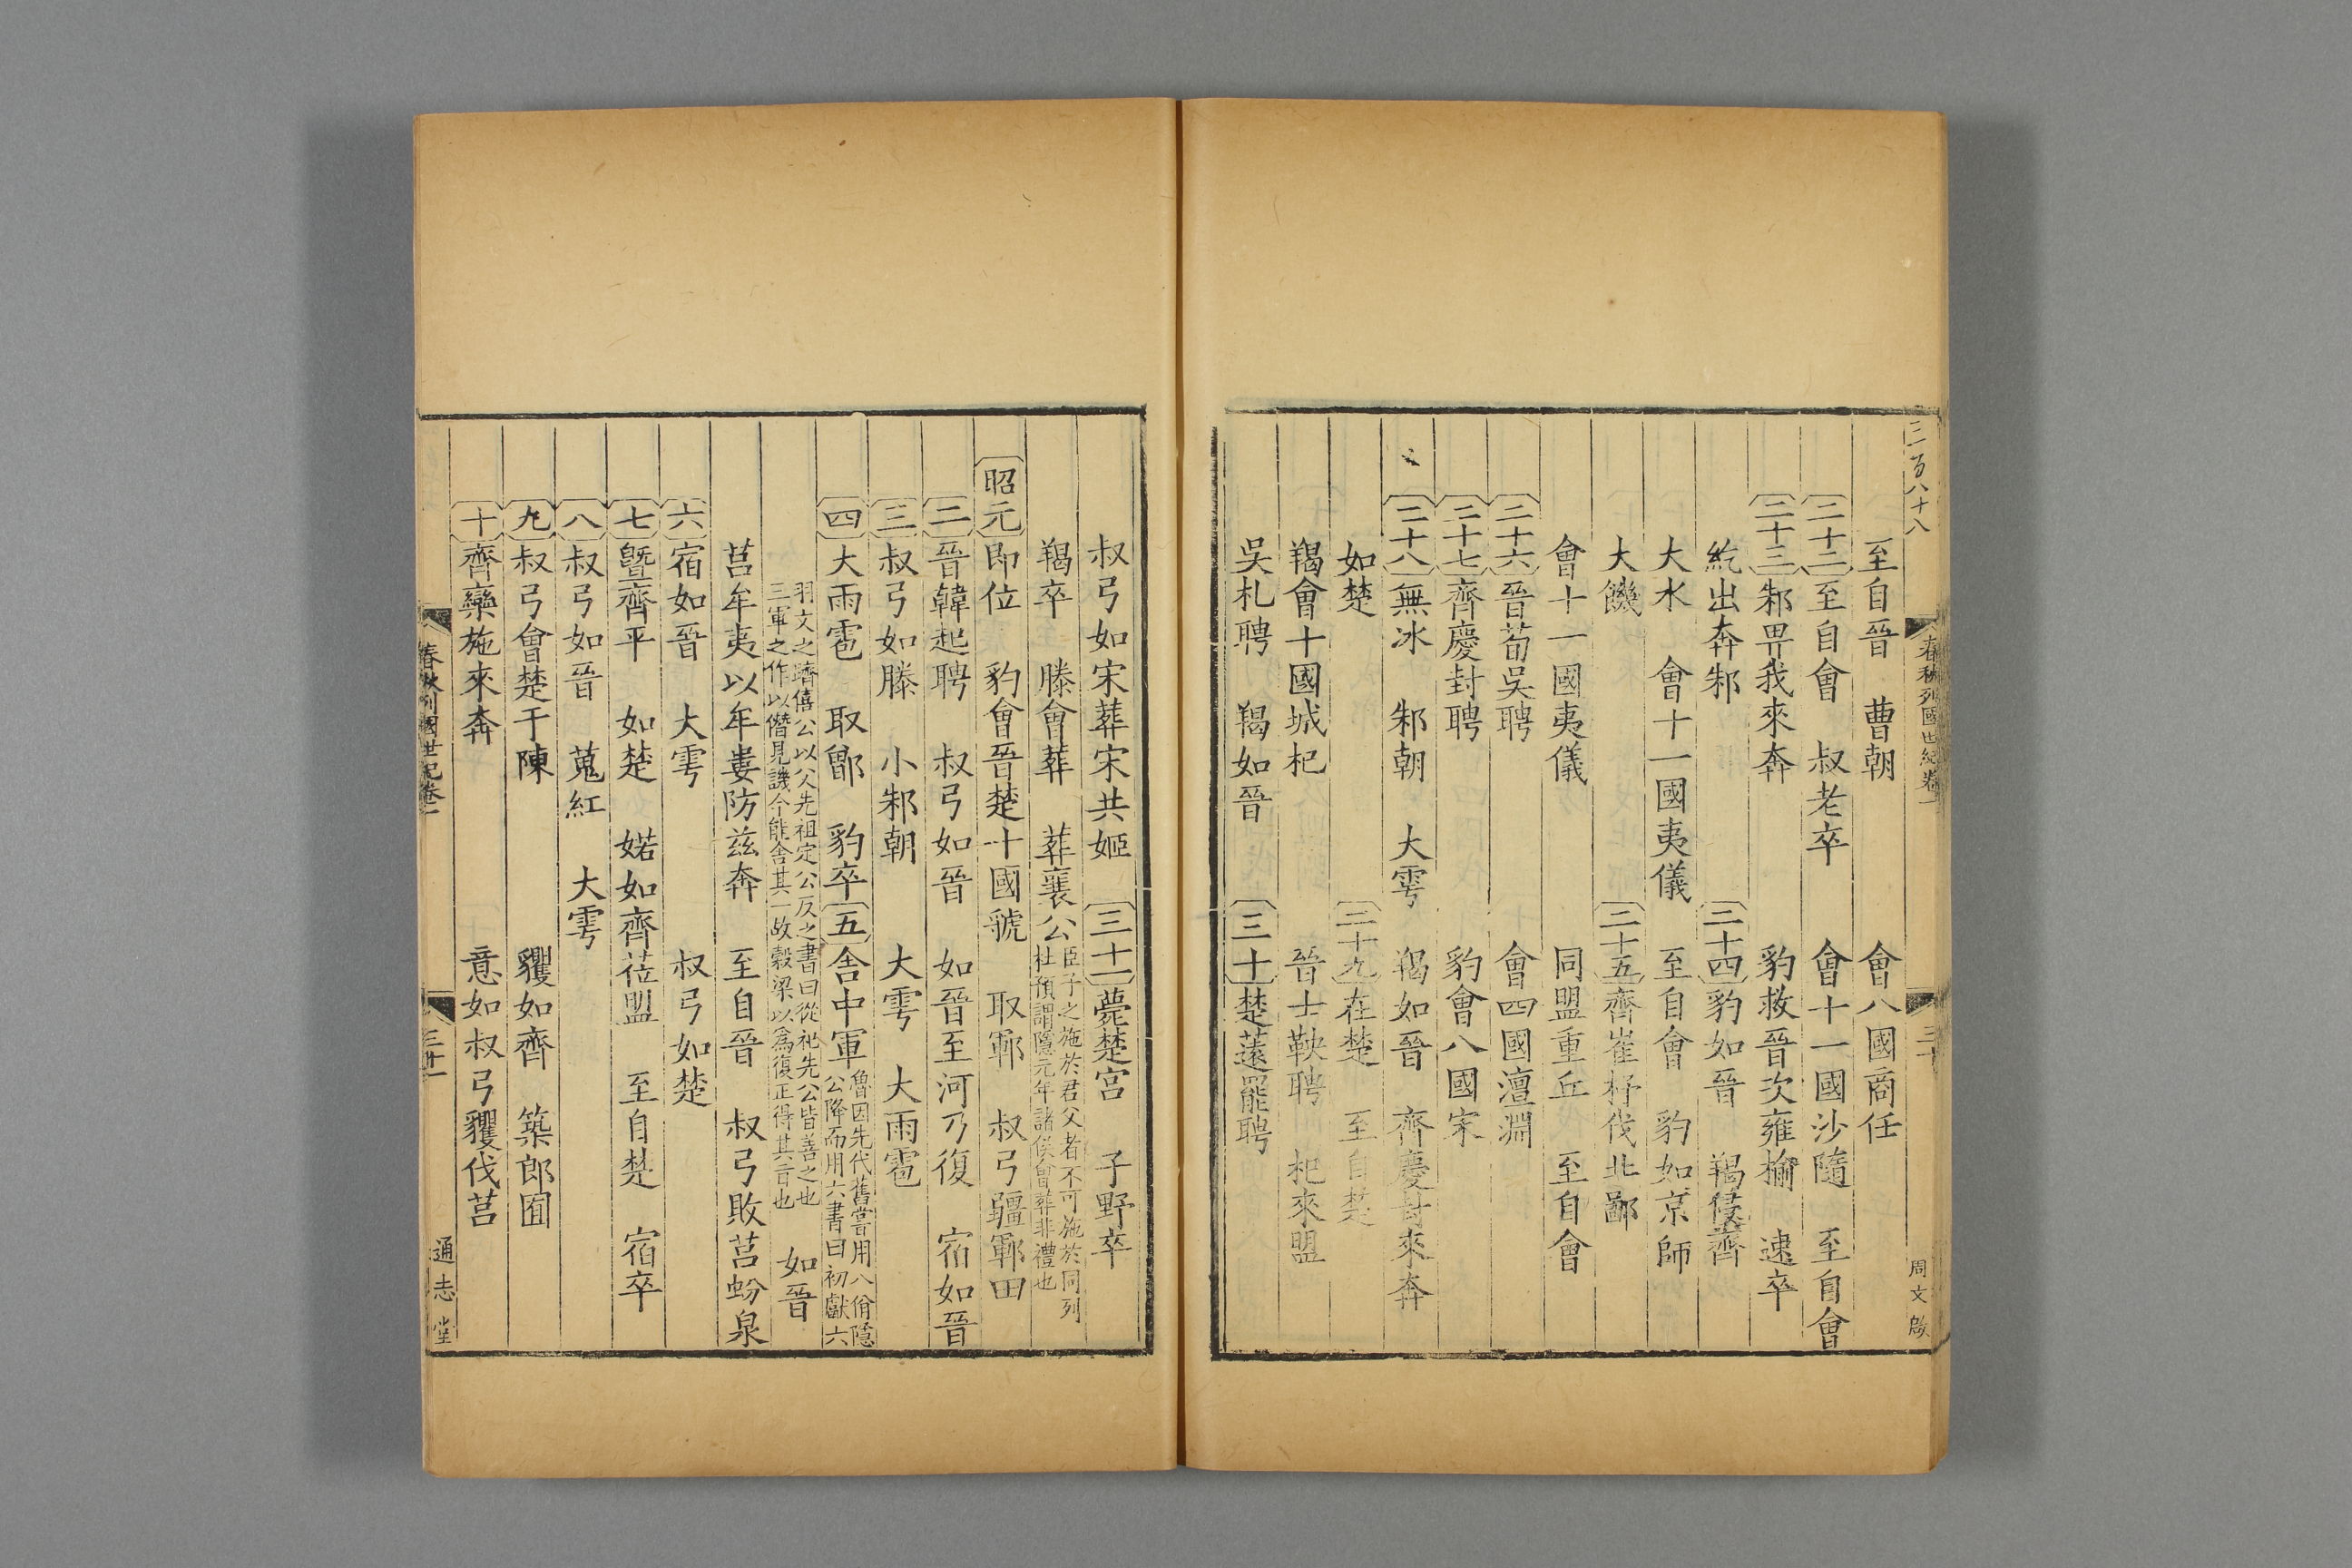 三百八十八
春秋列國世紀卷一
三十
周文啟
至自晉 曹朝 會八國商任
二十二至自會 叔老卒 會十一國沙隨 至自會
二十三邾畀我來奔 豹救晉次雍榆 逮卒
紇出奔邾 二十四豹如晉 羯侵齊
大水 會十一國夷儀 至自會 豹如京師
大饑 二十五齊崔杼伐北鄙
會十一國夷儀 同盟重丘 至自會
二十六晉荀吳聘 會四國澶淵
二十七齊慶封聘 豹會八國宋
二十八無冰 邾朝 大雩 羯如晉 齊慶封來奔
如楚 二十九在楚 至自楚
羯會十國城杞 晉士鞅聘 杞來盟
吳札聘 羯如晉 三十楚薳罷聘
叔弓如宋葬宋共姬 三十一薨楚宮 子野卒
羯卒 滕會葬 葬襄公臣子之施於君父者不可施於同列
杜預謂隱元年諸侯會葬非禮也
昭元即位 豹會晉楚十國虢 取鄆 叔弓疆鄆田
二晉韓起聘 叔弓如晉 如晉至河乃復 宿如晉
三叔弓如滕 小邾朝 大雩 大雨雹
四大雨雹 取鄫 豹卒五舍中軍魯因先代舊嘗用八佾隱
公降而用六書曰初獻六
羽文之躋僖公以父先祖定公反之書曰從祀先公皆善之也
三軍之作以僭見譏今能舍其一故穀梁以爲復正得其言也 如晉
莒牟夷以牟婁防兹奔 至自晉 叔弓敗莒蚡泉
六宿如晉 大雩 叔弓如楚
七曁齊平 如楚 婼如齊莅盟 至自楚 宿卒
八叔弓如晉 蒐紅 大雩
九叔弓會楚于陳 貜如齊 築郎囿
十齊欒施來奔 意如叔弓貜伐莒
春秋列國世紀卷一
三十一
通志堂